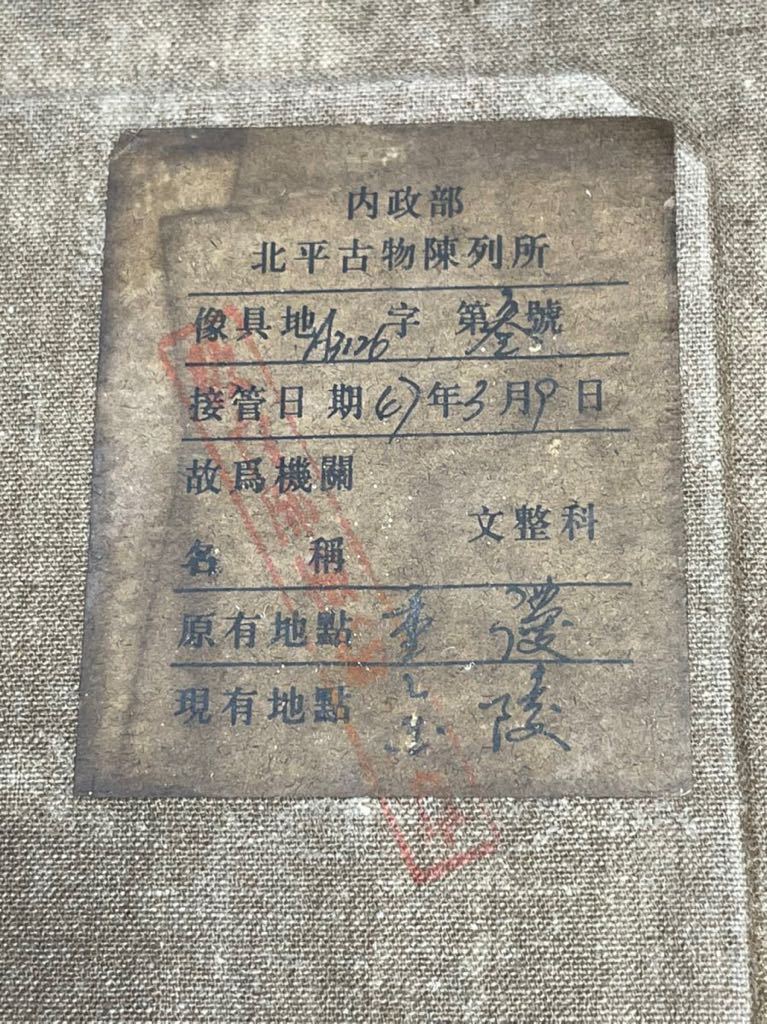 内政部
北平古物陳列所
傢具地A3126字 第叁號
接管日期67年3月9日
故爲機關
文整科
名 稱
原有地點 重 慶
現有地點 金 陵